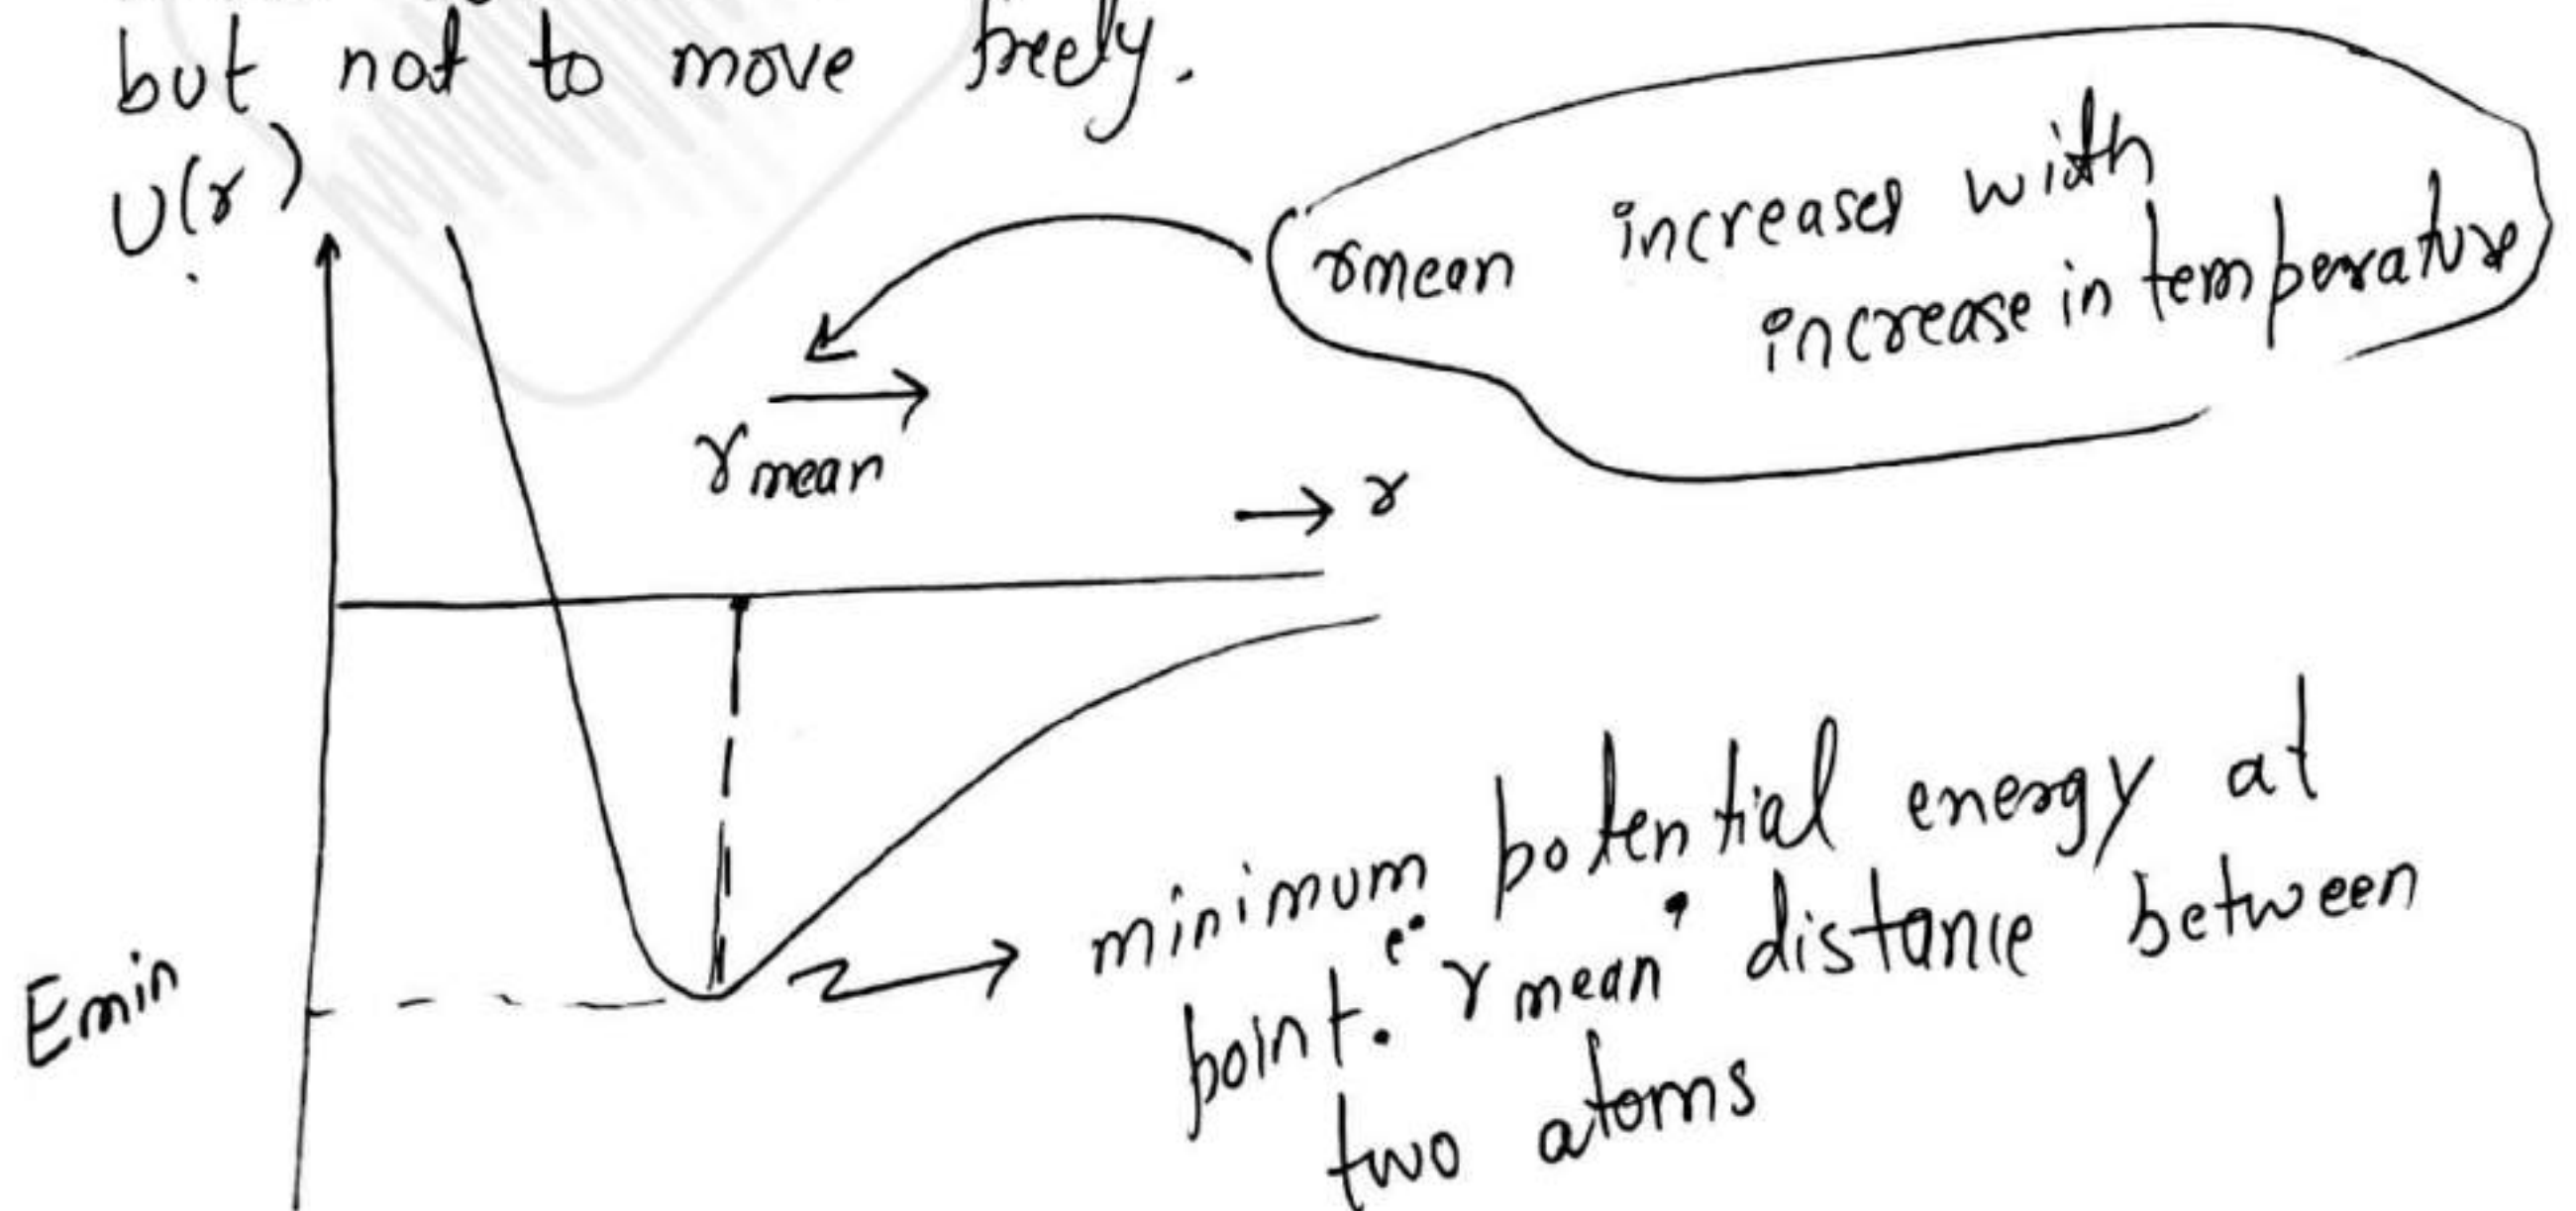 but not to move freely.
U(r)
rmean increases with
increase in temperature
rmean
→ r
Emin
minimum potential energy at
point. "rmean" distance between
two atoms